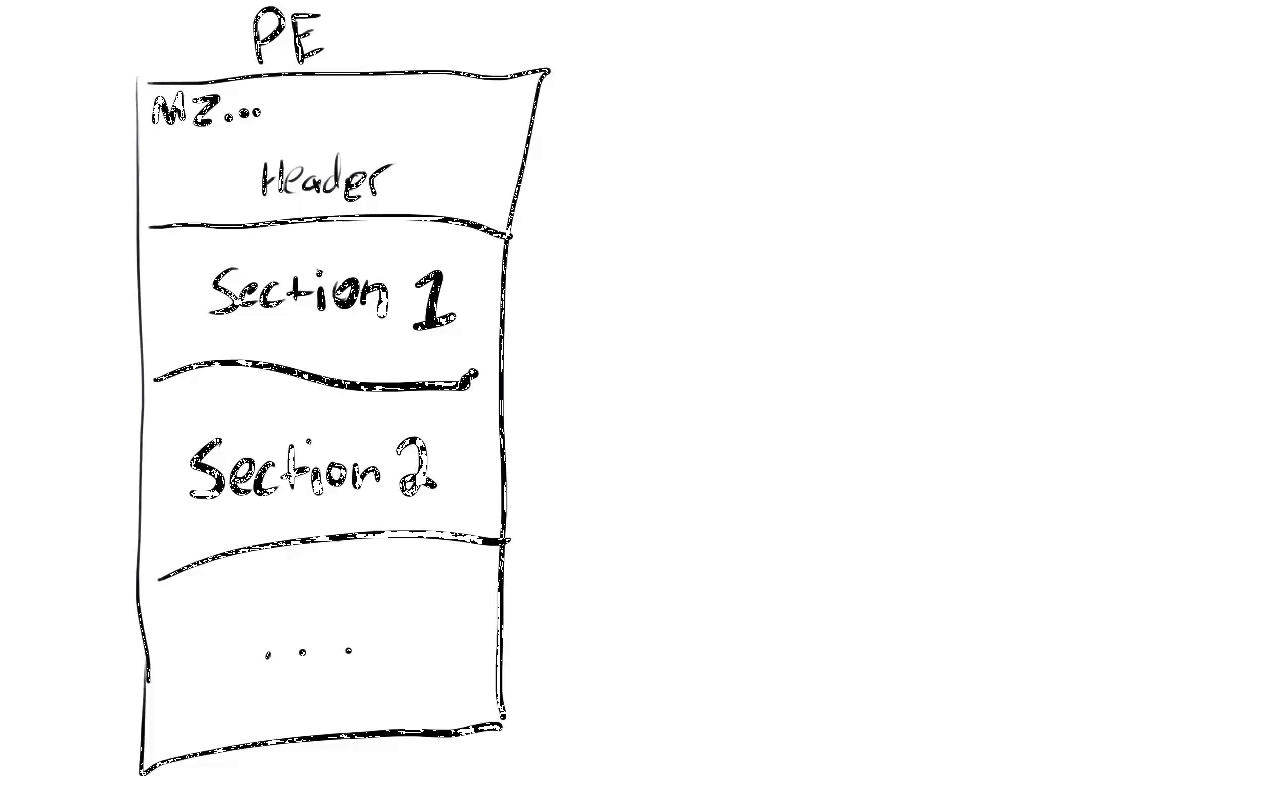 PE
MZ...
Header
Section 1
Section 2
...